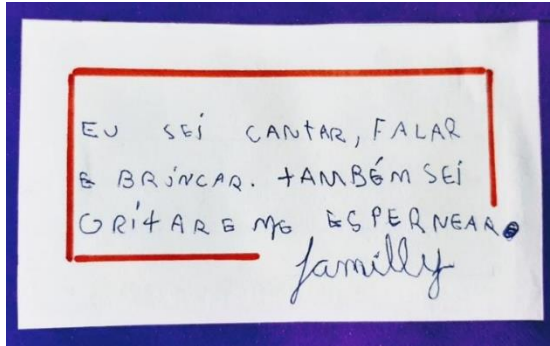 EU SEI CANTAR, FALAR
E BRINCAR. TAMBÉM SEI
GRITAR E ME ESPERNEAR.
Jamilly